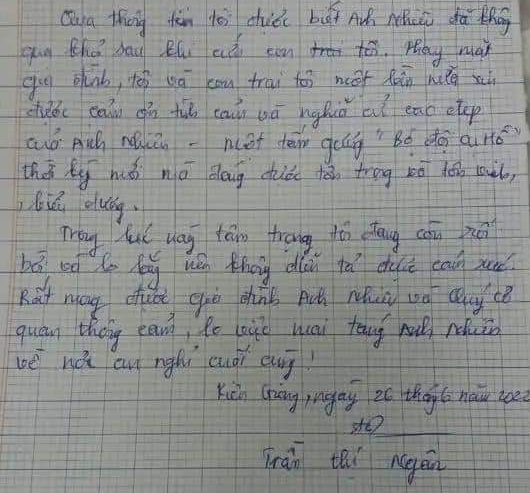 Qua thông tin tôi được biết Anh Nhiên đã không
qua khỏi sau khi cứu con trai tôi. Thay mặt
gia đình, tôi và con trai tôi một lần nữa xin
được cảm ơn tình cảm và nghĩa cử cao đẹp
của Anh Nhiên - một tấm gương "Bộ đội cụ Hồ"
thời kỳ mới nó đáng được tôn trọng và tôn vinh,
biểu dương.
Trong lúc này tâm trạng tôi đang còn rối
bời và lo lắng nên không diễn tả được cảm xúc.
Rất mong được gia đình Anh Nhiên và Quý cơ
quan thông cảm, lo việc mai táng Anh Nhiên
về nơi an nghỉ cuối cùng!
Kiên Giang, ngày 26 tháng 6 năm 2022
Trần thị Ngân